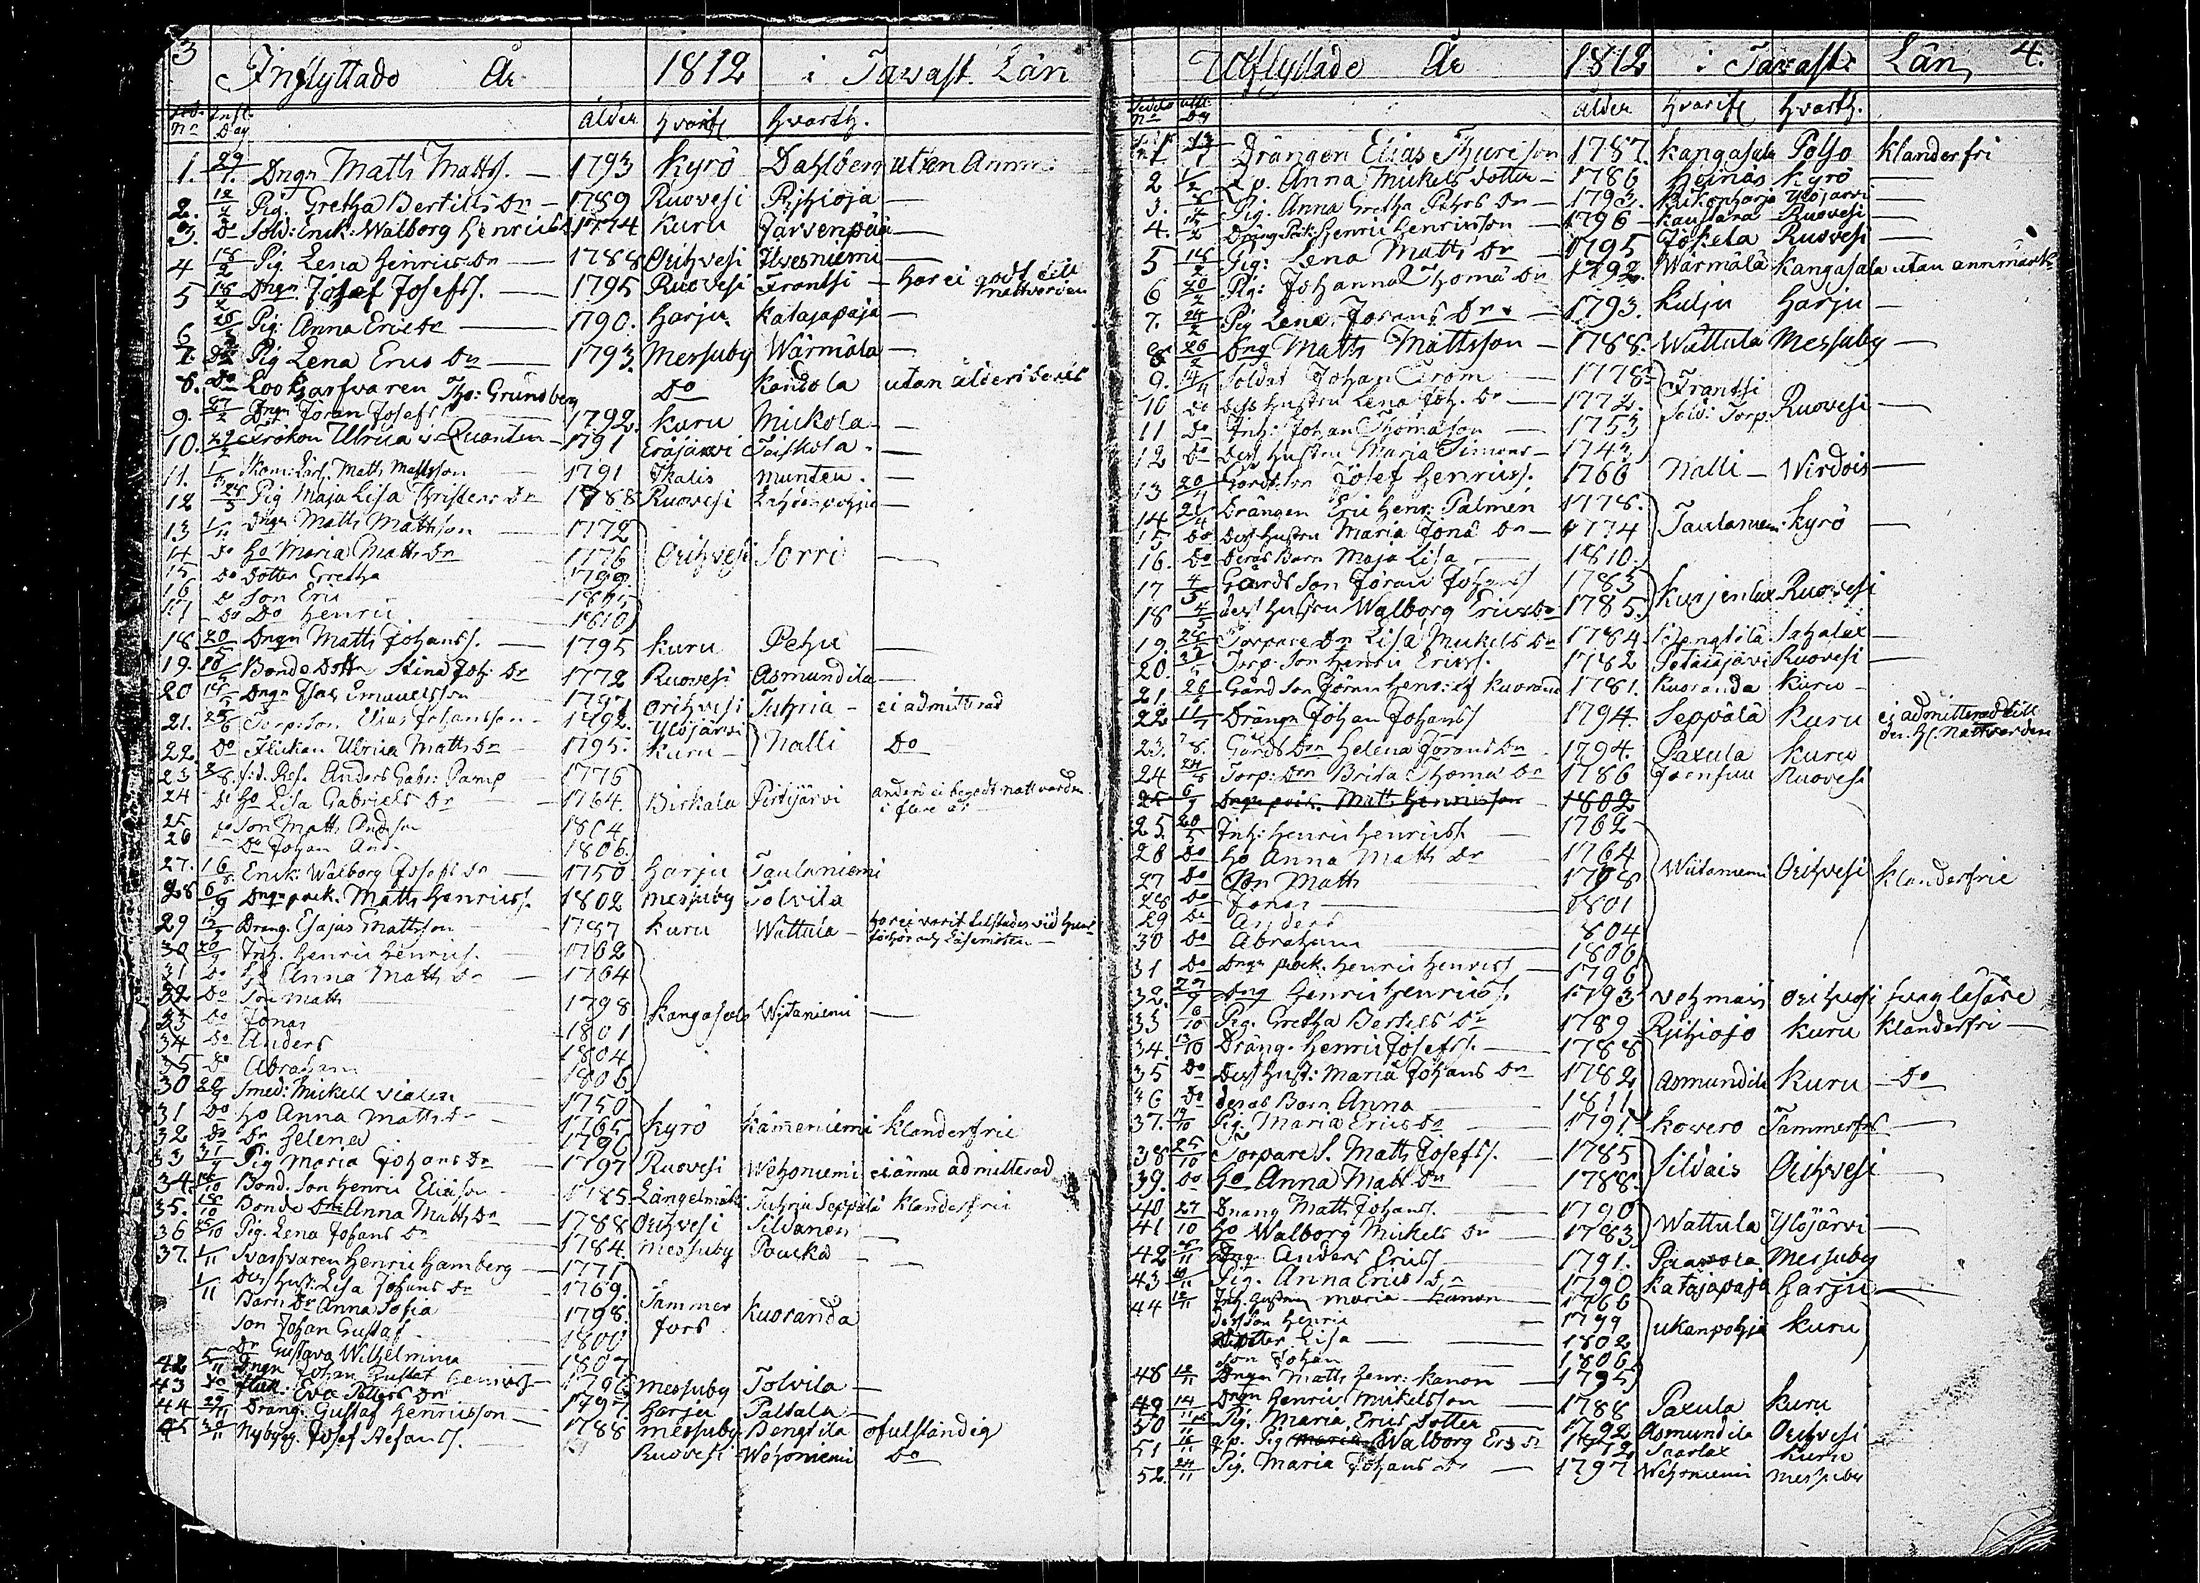 3 Inflyttade År 1812 i Tavast. Län
Infl. Dag Ålder hvarifr. hvarth.
1. 29/1. Drgn Matts Matts. — 1793 Kyrö Dahlberg utan Anm:
2. 12/2 Pig. Gretha Bertills Dr — 1789 Ruovesi Rihioja —
3. Do Sold: Enck: Walborg Henricks 1774 Kuru Järvenpää —
4 18/2 Pig Lena Henrics Dr — 1788 Orihvesi Ilvesniemi —
5 18/2 Drgn Josef Josefss. — 1795 Ruovesi Frantsi — har ei gådt till nattvarden
6 28/2 Pig. Anna Erics Dr — 1790. Harju Katajapaja —
7. Do Pig Lena Erics Dr — 1793. Messuby Wärmälä —
8. Do Lookgarfvaren Tho: Grundberg Do Kandola utan ålders bevis
9. 27/2 Drgn Jöran Josefss — 1792. Kuru Mickola —
10. 29/2 Fröken Ulrica v. Quanten — 1791 Eräjärvi Taiskola —
11. Matts Mattsson 1791 Ikalis Munteu. —
12 24/3 Pig Maja Lisa Christers Dr 1788 Ruovesi —
13 Drgn Matts Mattsson — 1772
14 Do Ho Maria Matts Dr 1776 Orihvesi Sorri —
15 Do Dotter Gretha 1799.
16 Do Son Eric
17 Do Do Henric 1810
18. 20/5 Drgn Matts Johanss. — 1795 Kuru Pehu —
19. Bonde Dottr Stina Joh. Dr — 1772 Ruovesi Asmundila —
20 Drgn Isac Emanuelsson Orihvesi Juhria — ei admitterad
21. Torp: Son Elias Johansson — 1792. Ylöjärvi
22. Do Flickan Ulrica Matts Dr — 1795. Kuru — Nalli Do
23 Anders Gabr: Pamp — 1776
24 Do Ho Lisa Gabriels Dr — 1764. Birkala Pirtijärvi anders ei begådt nattvarden i flere år
25 Do Son Matts Anderson 1804
26 Do Do Johan And. 1806.
27. Enck: Walborg Josefs Dr — 1750 Harju Taulaniemi
28 6/9 Drgn pock. Matts Henricss. 1802 Messuby Tolvila
29 Dräng. Esajas Mattsson — 1787 Kuru Wattula —
30 20/9 Inh. Henric Henrics. — 1762
31 Do Ho Anna Matts Dr — 1764
32 Do Son Matts 1798 Kangasala Wijtaniemi —
33 Do Jonas 1801
34 Do Anders 1804
35 Do Abraham 1806
30 20/9 Smed: Mickell 1750
31 Do Ho Anna Matts Dr — 1765 Kyrö Kämeniemi Klanderfrie
32 Do Dr Helena
33 Pig Maria Johans Dr — 1797 Ruovesi Wehoniemi ei ännu admitterad
34. Bond. Son Henric Eliason 1785. Längelmäki Juhria Seppälä Klanderfrii
35. 15/10 Bonde Dr Anna Matts Dr 1788 Orihvesi Sildanen —
36 25/10 Pig. Lena Johans Dr — 1784. Messuby Poucka —
37. 1/11 Svarfvaren Henric Hamberg — 1771
1/11 Dess Hust. Lisa Johans Dr — 1769. Tammerfors Kuoranda
Barn Dr Anna Sofia 1798.
Son Johan Gustaf 1800
Dr Gustava Wilhelmina 1807
42 5/11 Drgn Johan Gustaf Henricss — Messuby Tolvila —
43 Do Flick: Eva Petters Dr 1797. Harju Paltala —
44 29/11 Dräng: Gustaf Henricsson — 1788 Messuby Bengtila ofulständig
45 Nybygg. Josef Stefanss. — Ruovesi Wehoniemi Do
4.
Utflyttade År 1812 i Tavast: Län
Utfl. Dag Ålder hvarifr hvarth.
1 13/1 Drängen Elias Thurison 1787. Kangasala Polso Klanderfri
2 1/2 Anna Mickels dotter — 1786 Höinäs Kyrö —
3. Pig. Anna Gretha Petters Dr — Ylöjärvi —
4. Dräng Pock: Henric Henricson — 1796 Kaustara Ruovesi —
5 18/2 Pig: Lena Matts Dr — 1795 Jokela Ruovesi —
6 20/2 Pig: Johanna Thomæ Dr 1792. Wärmälä Kangasala utan annmärk:
7. 24/2 Pig Lena Jörans Dr — 1793. Kulju Harju —
8 26/2 Drg Matts Mattsson — 1788. Wattula Messuby —
9. Soldat Johan Ström — 1778 Frantsi
10 Do dess hustru Lena Joh. Dr — 1772. Sold: Torp: Ruovesi —
11 Do Inh: Johan Thomason — 1753
12 Do Dess hustru Maria Simons — 1743
13 20/4 Gårds Son Josef Henricss. 1766 Nalli — Wirdois —
14 21/4 Drängen Eric Henr: Palmén 1778.
15 Do Dess hustru Maria Jona Dr — 1774 Taulaniemi Kyrö —
16. Do deras Barn Maja Lisa — 1810.
17 4/5 Gårds Son Jöran Johanss 1783
18 4/5 dess hustru Walborg Erics Dr 1785. Kurjenlax Ruovesi
19. Torpare Dr Lisa Mickels Dr 1784 Bengtilä Sahalax —
20. Torp: Son Henric Ericss. 1782 Ruovesi —
21. Gård Son Jöran Henr: af Kuoranda 1781. Kuoranda Kuru —
22. Drängn Johan Johanss 1794. Seppälä Kuru ej admitterad till den H. Nattvarden
23. Gårds Drn Helena Jörans Dr 1794. Paxula Kuru
24 Torp: Drn Brita Thomæ Dr 1786 Joensuu Ruovesi
25 6/9 Drgn pock. Matts Henricsson 1802
25. 20/5 Inh: Henric Henricss. — 1762
26 Do Ho Anna Matts Dr — 1764
27 Do Son Matts 1798 Wiitaniemi Orihvesi Klanderfrie
28 Do Jonas — 1801
29 Do Anders 1804
30 Do Abraham 1806
31 Do Drgn pock. Henric Henricss — 1796
32. Drg Henric Henricss. 1793 Vehmais Orihvesi svag läsare
33 Pig. Gretha Bertils Dr 1789 Rihiojo Kuru Klanderfri —
34. 13/10 Dräng. Henric Josefss. — 1788
35 Do Dess Hust: Maria Johans Dr 1782 Asmundila Kuru — Do
36 Do deras Barn Anna — 1811
37. Pig. Maria Erics Dr — 1791 Kovero Tammerfors —
38 25/10 Torpare S. Matts Josefss. — 1785 Sildais Orihvesi —
39. Do Ho Anna Matts Dr 1788
40 27 Dräng Matts Johanss. — 1790 Wattula Ylöjärvi —
41 10 Ho Walborg Mickels Dr — 1783
42 Drg. Anders Ericss — 1791. Paavola Messuby
43 Pig. Anna Erics Dr — 1790 Katajapaja Harju —
44 12/11 Maria Kanon — 1766
dess Son Henric 1799 Ukanpohja Kuru
Dotter Lisa — 1802
Son Johan 1806
48 12/11 Drgn Matts Henr: Kanon — 1795
49 14/11 Drgn Henric Mickelsson — 1788 Paxula Kuru
50 Pig. Maria Erics Dotter — 1792 Asmundila Orihvesi —
51 Pig Maria Walborg Ers Dr Saarlax Kuru
52. 24/11 Pig. Maria Johans Dr — 1797 Wehoniemi Messuby